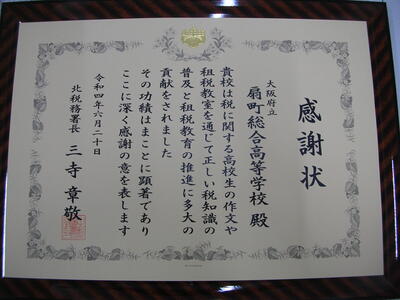 感謝状
大阪府立
扇町総合高等学校 殿
貴校は税に関する高校生の作文や
租税教室を通じて正しい税知識の
普及と租税教育の推進に多大の
貢献をされました
その功績はまことに顕著であり
ここに深く感謝の意を表します
令和四年六月二十日
北税務署長 三寺章敬